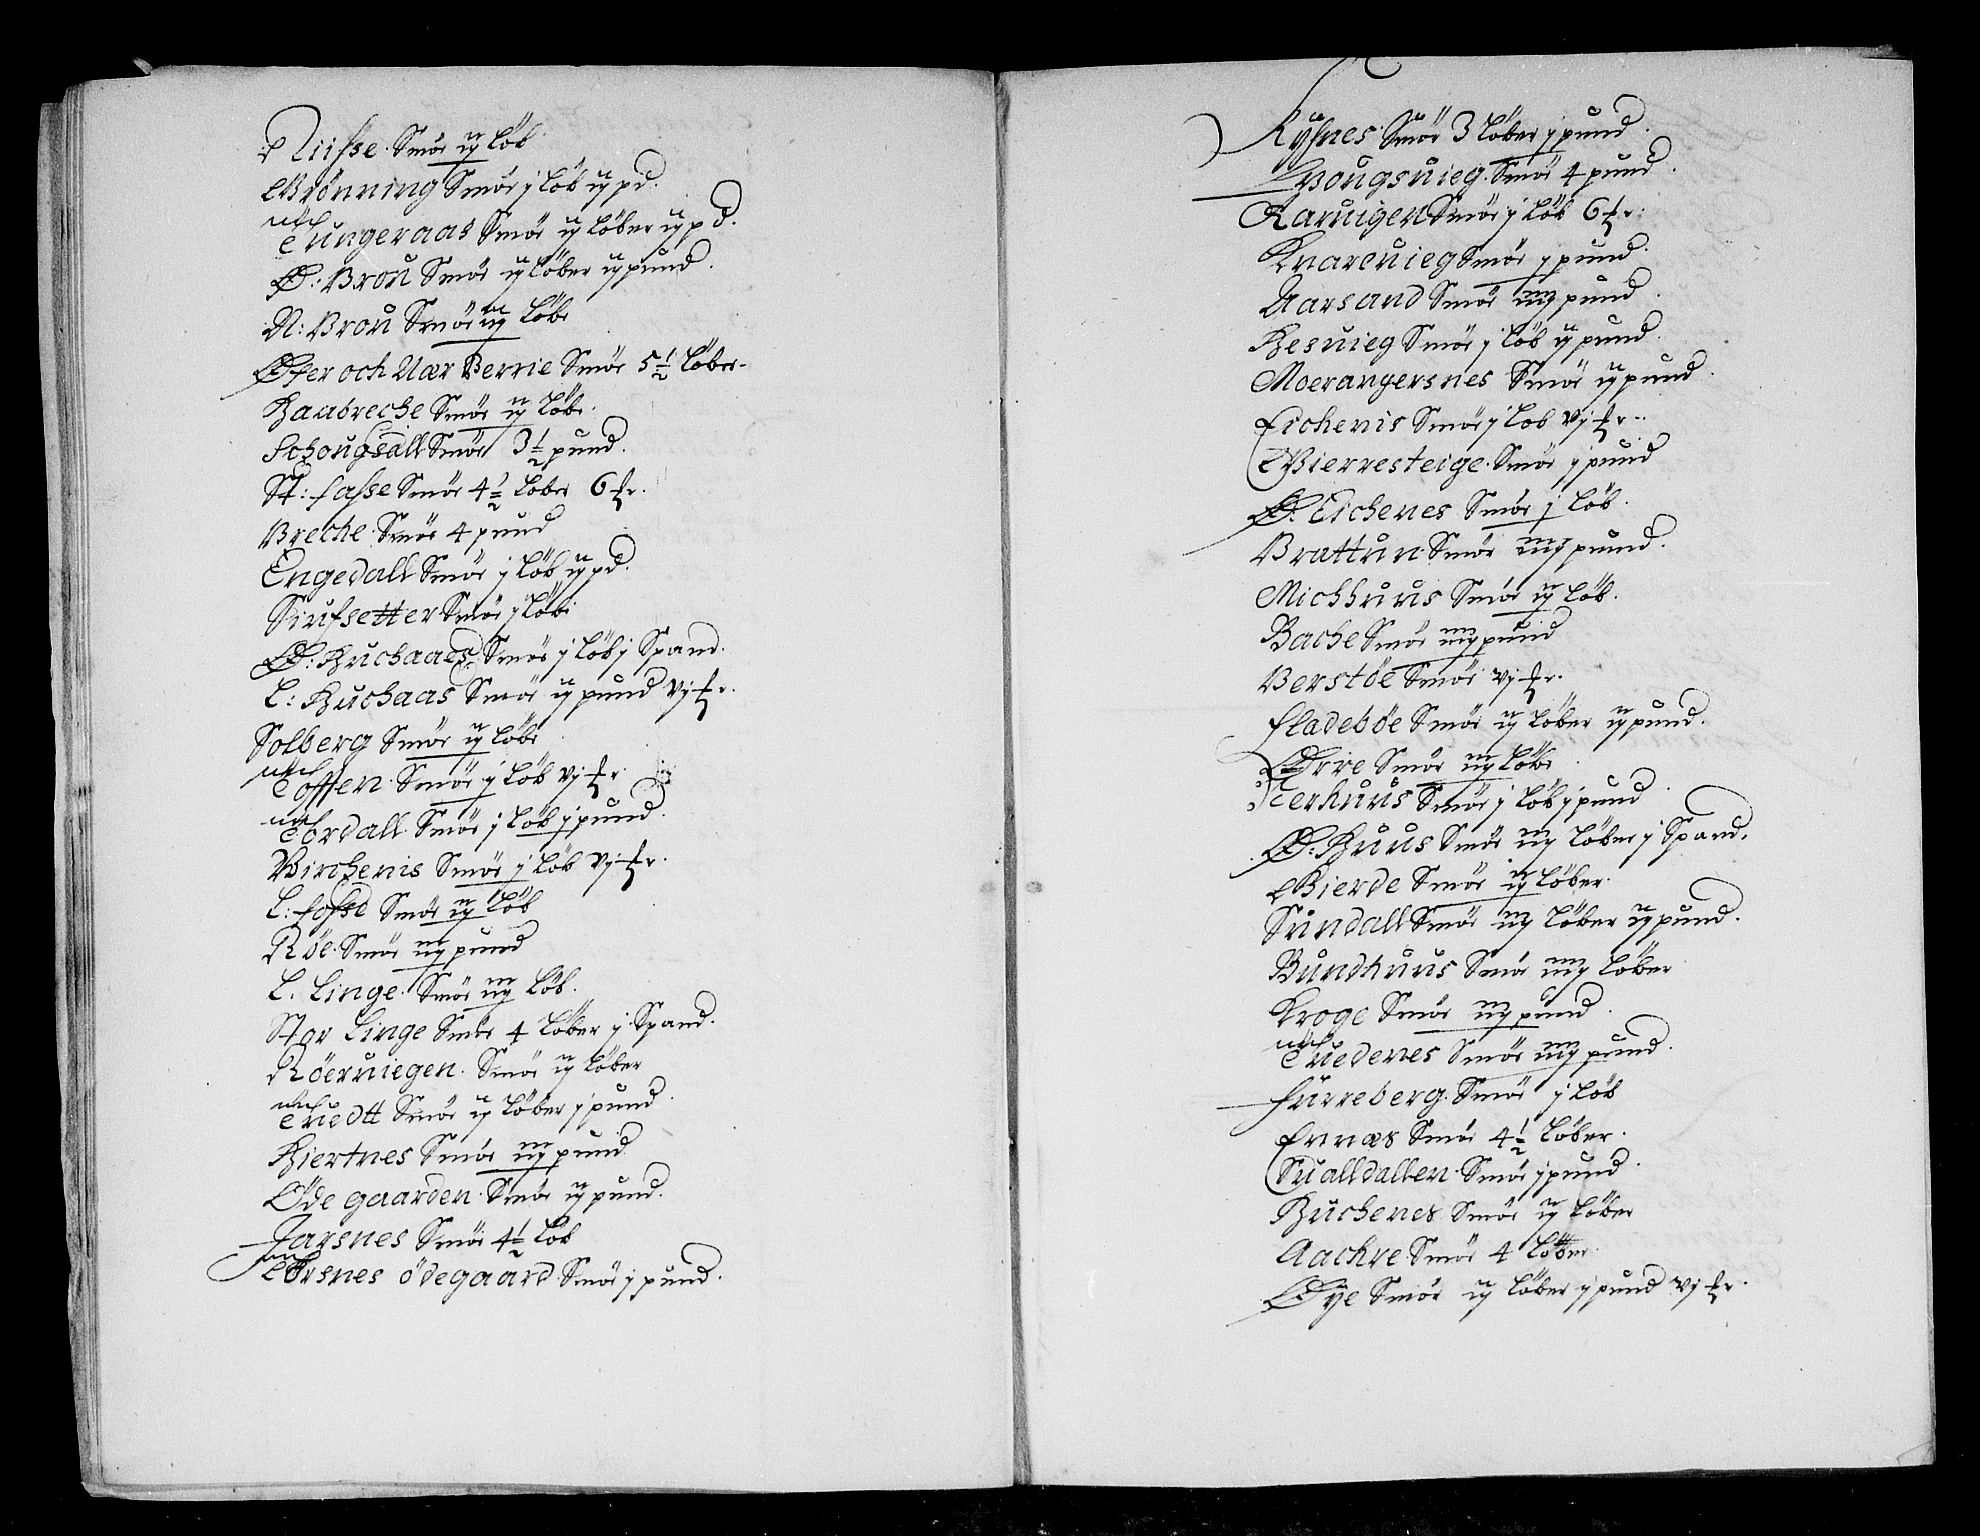 Riisse Smör ij löb
Brönning Smör j löb ij pd.
Tungeraas Smör ij löber ij pd.
Ö: Brou Smör ij löber ij pund.
N: Brou Smör iij löbe
Öfer och Nær Berrie Smör 5½ löber
Haabreche Smör ij löbe.
Schougsdall Smör 3½ pund.
St: fasse Smör 4½ löber 6 mkr.
Breche Smör 4 pund
Engedall Smör j löb ij pd.
Siufsetter Smör j löbe
Ö: Huchaaes Smör j löb j Spand.
L: Huchaas Smör ij pund vj mkr.
Solberg Smör ij löbe
Tofften Smör j löb vj mkr.
Tördall Smör j löb j pund.
Birchenis Smör j löb vj mkr.
L: fosse Smör ij löb
Röe Smör iij pund
L. Linge Smör iij löb.
Stor Linge Smör 4 löber j Spand.
Röeruiegen Smör ij löber
Tuedtt Smör ij löber j pund
Hiertnes Smör iij pund
Öde gaarden Smör ij pund.
Jarsnes Smör 4½ löb
Torsnes ödegaard Smör j pund.
Kysnes Smör 3 löber j pund.
Vougsuieg Smör 4 pund.
Karuigen Smör j löb 6 mkr.
Kvareuieg Smör j pund.
Aarsand Smör iiij pund
Hesuieg Smör j löb ij pund.
Moerangersnes Smör ij pund
Eichenis Smör j löb vj mkr.
Bierresteige Smör j pund
Ö: Eichenes Smör j löb.
Brattun Smör iiij pund.
Michhuus Smör ij löb.
Bache Smör iiij pund
Berstöe Smör vj mkr.
fladeböe Smör ij löber ij pund.
Örre Smör iij löbe
Nerhuus Smör j löb j pund
Ö: Huus Smör iij löber j Spand.
Gierde Smör ij löber.
Sundall Smör iij löber ij pund.
Bundhuus Smör iiij löber
Kroge Smör iij pund
Tuedenes Smör iiij pund.
furreberg Smör j löb
Ennæs Smör 4½ löber.
Sualldallen Smör j pund.
Huchenes Smör ij löber
Aachre Smör 4 löber.
Öye Smör ij löber j pund vj mkr.